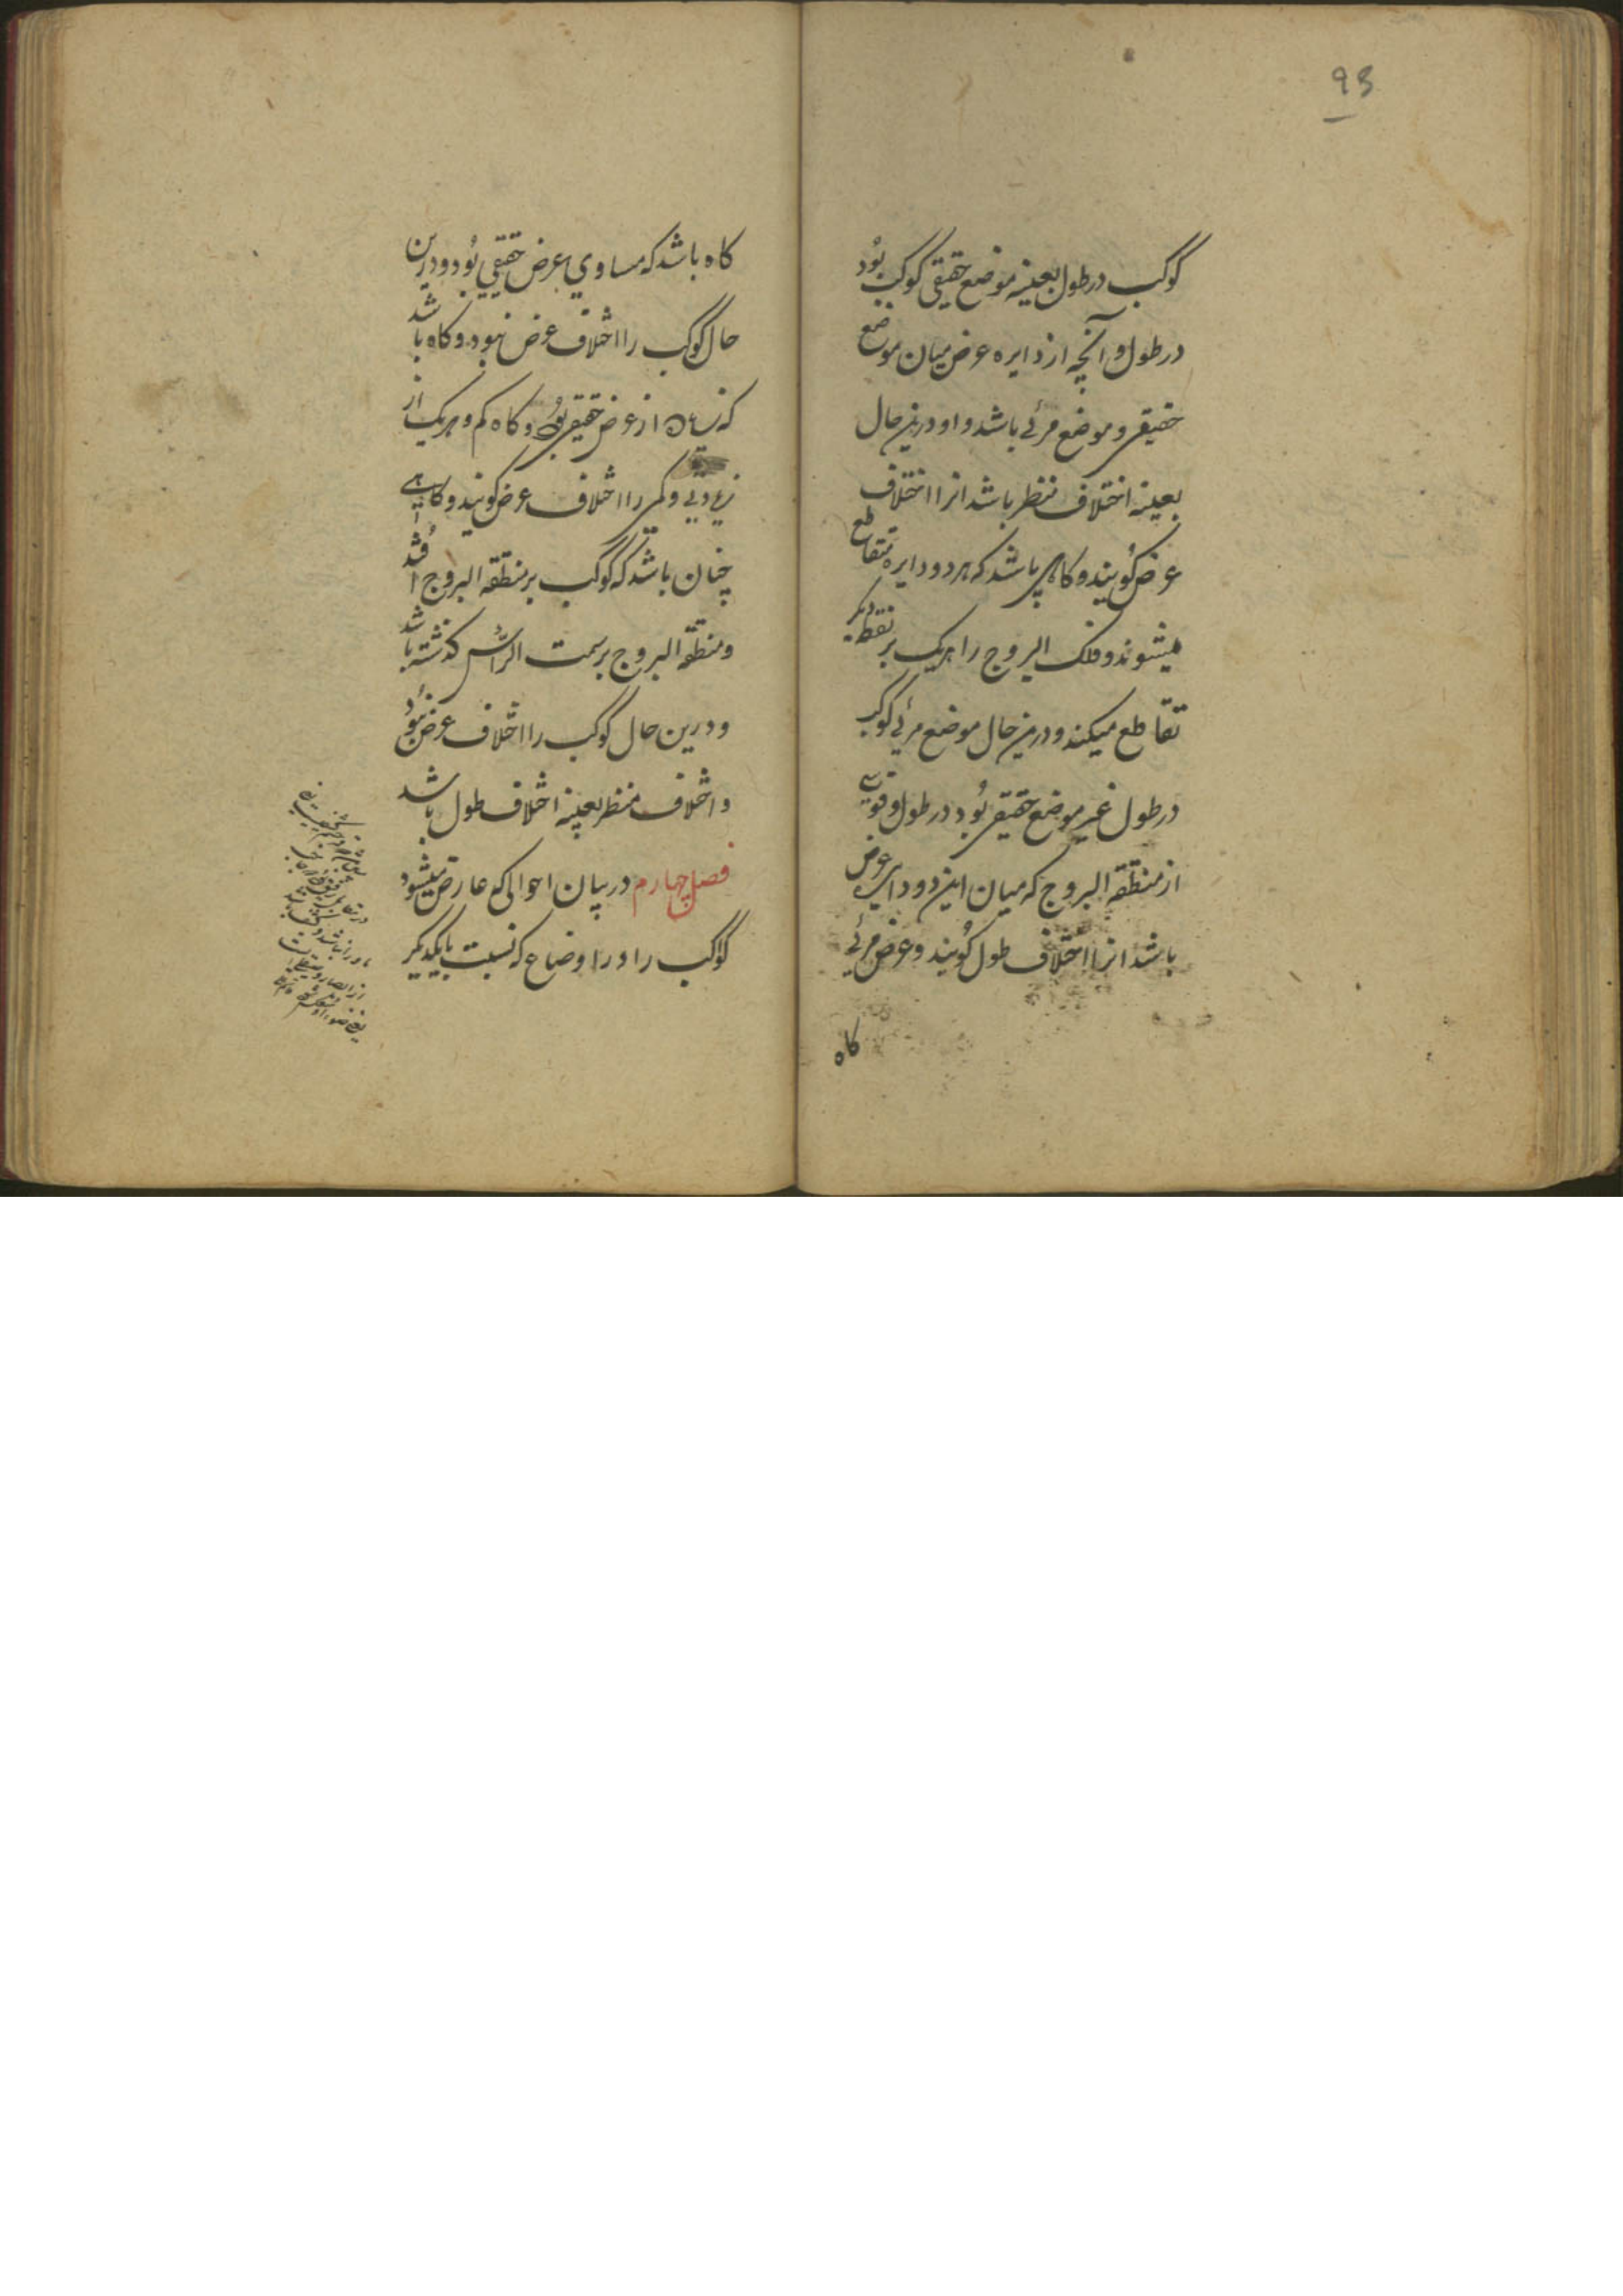 93
کوکب در طول بعینه موضع حقیقی کوکب بُود
در طول و آنچه از دایره عرض میان موضع
حقیقی و موضع مرئی باشد و او درین حال
بعینه اختلاف منظر باشد انرا اختلاف
عرض کویند و کاهی باشد که هر دو دایره متقاطع
میشوند و فلک البروج را هریک بر نقطه دیکر
تقاطع میکند و درین حال موضع مرئی کوکب
در طول غیر موضع حقیقی بُود در طول و قوسی
از منطقه البروج که میان این دو دایره عرض
باشد انرا اختلاف طول کویند و عرض مرئی
کاه
کاه باشد که مساوی عرض حقیقی بُود و درین
حال کوکب را اختلاف عرض نبود و کاه باشد
که زیاده از عرض حقیقی بُود و کاه کم و هریک از
زیادتی و کمی را اختلاف عرض کویند و کاهی
چنان باشد که کوکب بر منطقه البروج افتد
و منطقه البروج بر سمت الراس کذشته باشد
و درین حال کوکب را اختلاف عرض نبُود
و اختلاف منظر بعینه اختلاف طول باشد
فصل چهارم در بیان احوالی که عارض میشود
کواکب را در اوضاع که نسبت بایکدیکر